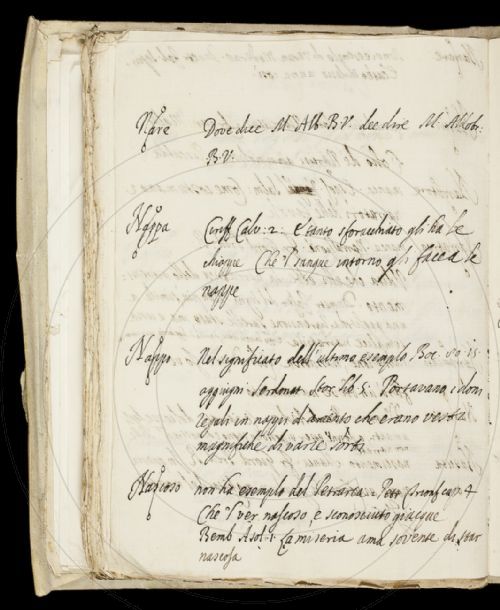 Nare Dove dice M. Alb. B.V. dee dire M. Aldobr.
B.V.
Nappa Ciriff. Calv: 2. E tanto sforacchiato gli ha le
Che 'l sangue intorno gli facea le
nappe
Nappo Nel significato dell'ultimo esemplo Boc. 80. 15
aggiugni Serdonat. Stor. lib. 5. Portavano i doni
regali in nappi d'argento che erano veste
magnifiche di varie sorti
Nascoso non ha esemplo del Petrarca. Petr. cap. 4
Che 'l ver nascoso, e sconosciuto giacque
Bemb. Asol. 1. La miseria ama sovente di star
nascosa